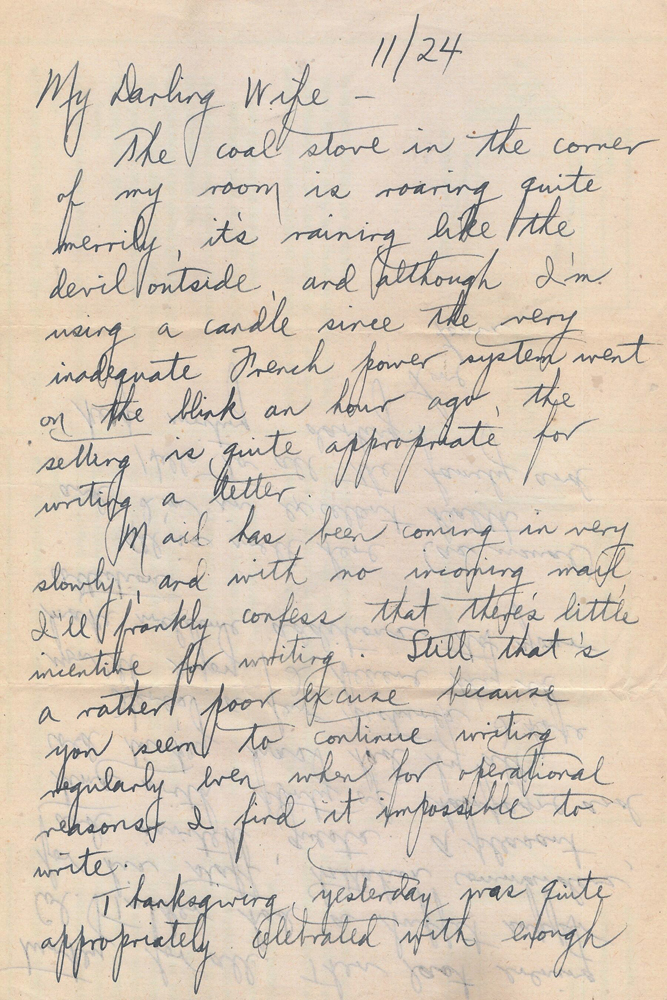 11/24
My Darling Wife –
The coal stove in the corner
of my room is roaring quite
merrily, it's raining like the
devil outside, and although I'm
using a candle since the very
inadequate French power system went
on the blink an hour ago, the
setting is quite appropriate for
writing a letter.
Mail has been coming in very
slowly, and with no incoming mail
I'll frankly confess that there's little
incentive for writing. Still that's
a rather poor excuse because
you seem to continue writing
regularly even when for operational
reasons I find it impossible to
write.
Thanksgiving yesterday was quite
appropriately celebrated with enough